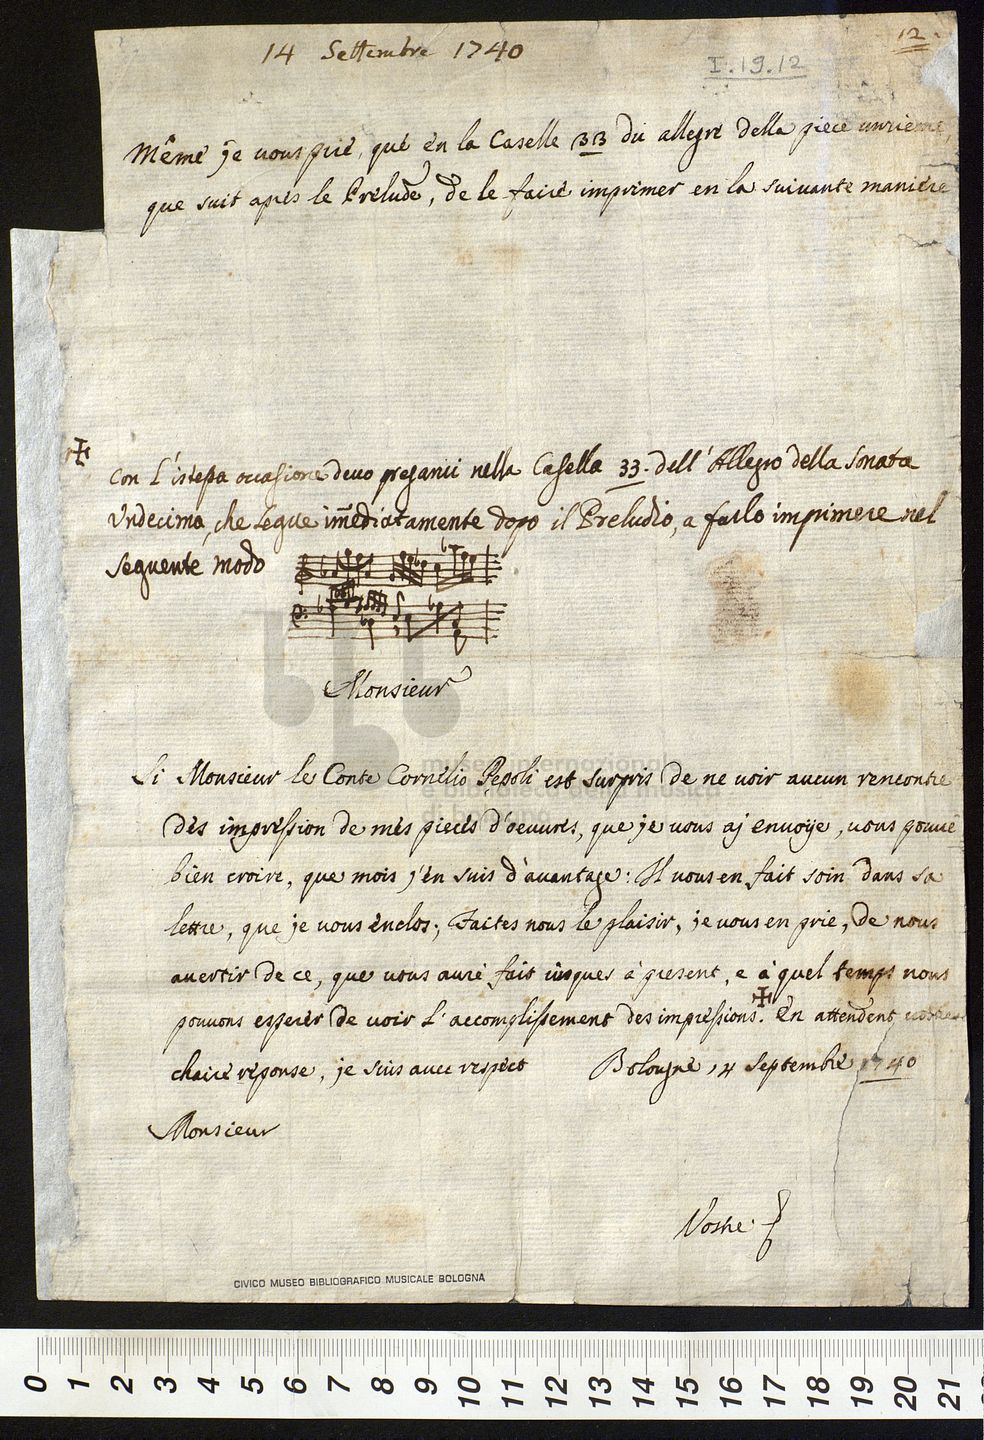 14 Settembre 1740
12.
I.19.12
Même je vous prié, qué en la Caselle 33 du allegré della piece unzieme,
que suit aprés le Prélude, de le fairé imprimer en la suivante maniére
Con l'istessa occasione devo pregarvi nella Casella 33. dell'Allegro della Sonata
Undecima, che segue imediatamente dopo il Preludio, a farlo imprimere nel
seguente modo
Monsieur
Si Monsieur le Conte Cornélio Pepoli est surpris de ne voir aucun rencontre
dés impréssion de més piecés d'oeuvrés, que je vous aj envoÿe, vous pouvé
bien croire, que mois j'én suis d'avantage: Il vous en fait soin dans sa
lettre, que je vous énclos; Faites nous le plaisir, je vous en prie, de nous
avertir de ce, que vous auré fait iusques à présent, e à quel temps nous
pouvons espérér de voir l'accomplissement des impréssions. En attendent vostre
chairé réponse, je suis avec réspéct
Bolougne 14 Septembre 1740
Monsieur
Vostre
museo internazionale
e biblioteca della musica
di bologna
CIVICO MUSEO BIBLIOGRAFICO MUSICALE BOLOGNA
0 1 2 3 4 5 6 7 8 9 10 11 12 13 14 15 16 17 18 19 20 21